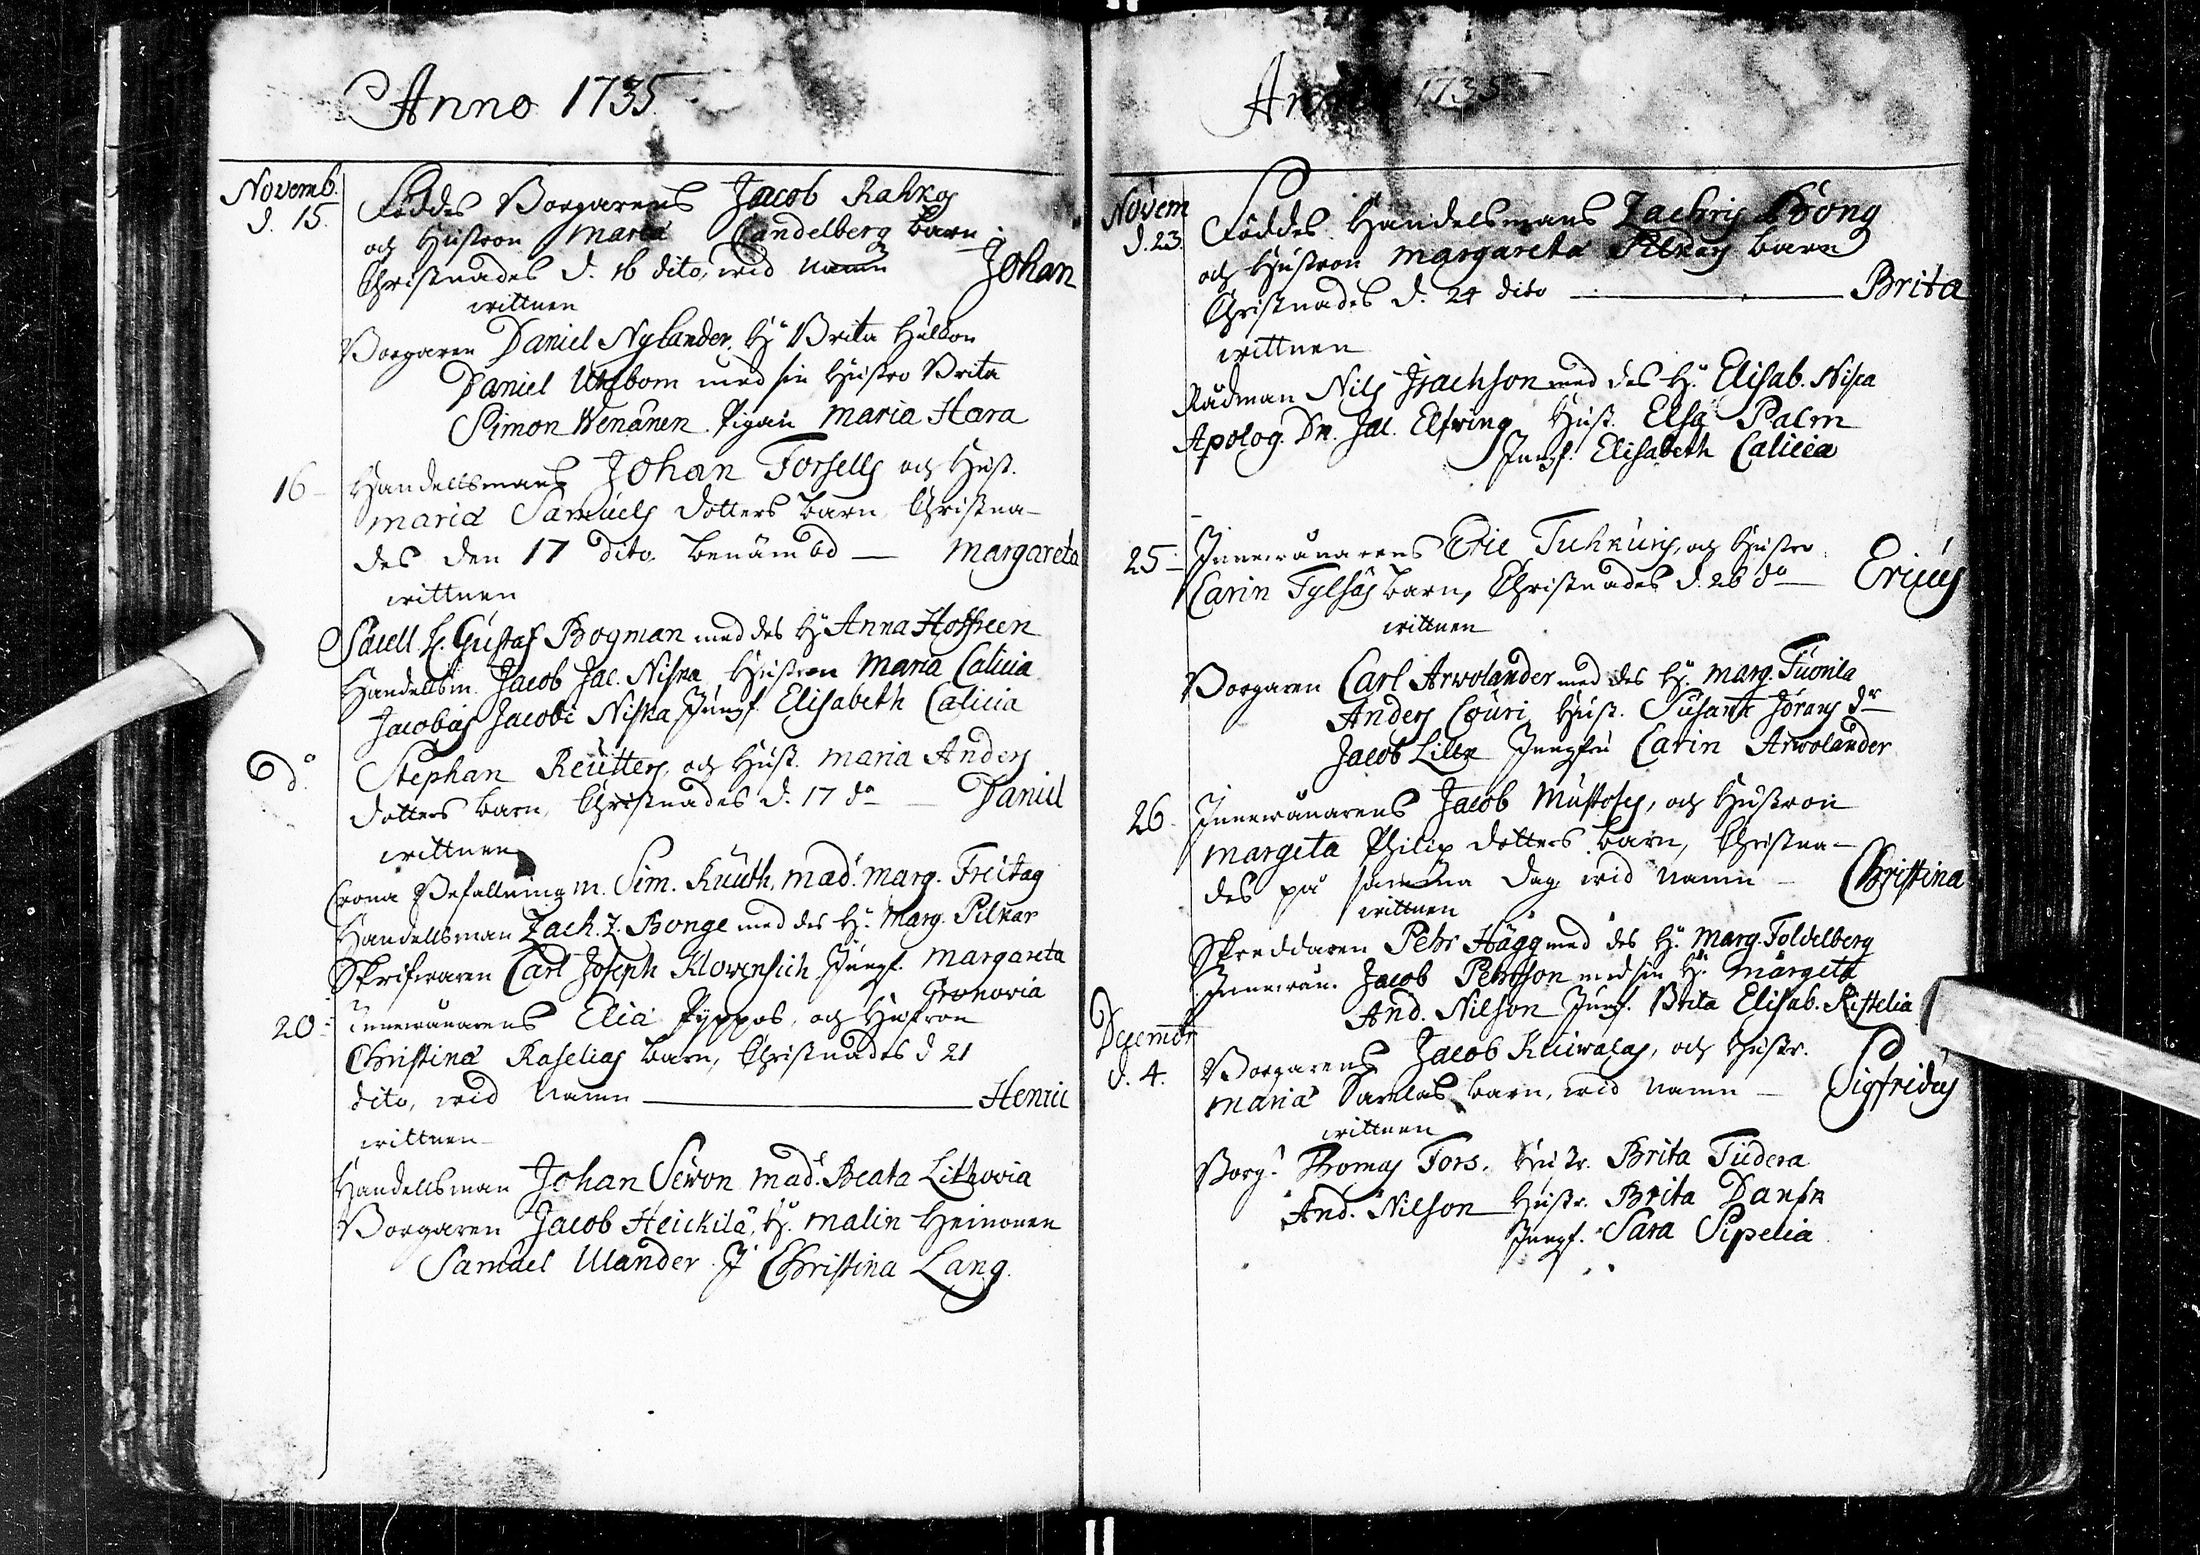 Anno 1735
Novemb.
d. 15.
Föddes Borgarens Jacob Rahkos
och Hustron Maria Candelberg barn
Christnades d. 16 dito, wid namn Johan
wittnen
Borgaren Daniel Nylander, H. Brita Hulkon
Daniel med sin Hustro Brita
Simon Wenänen Pigan Maria Hara
16 Handelsmans Johan Forsells och Hust.
Maria Samuels dotters barn Christna-
des den 17 dito. benämbd — Margareta
wittnen
H. Gustaf Bogman med des H. Anna Hoffreen
Handelsm. Jacob Jac. Niska Hustron Maria Calicia
Jacobus Jacobi Niska Jungf. Elisabeth Calicia
do Stephan Reutters, och Hust. Maria Anders
dotters barn, Christnades d. 17 do — Daniel
wittnen
Crono Befallningm. Sim. Kuuth, Mad. Marg. Freitag
Handelsman Zach. Z. Bonge med des H. Marg. Pilkar
Skrifwaren Carl Joseph Klowensich Jungf. Margareta
Gronovia
20 Innewånarens Elia Pyppos, och Hustron
Christina Raselias barn, Christnades d 21
dito, wid Namn — Henric
wittnen
Handelsman Johan Sewon Mad. Beata Lithovia
Borgaren Jacob Heickilä, H. Malin Heinonen
Samuel Ulander J. Christina Lang.
Anno 1735
Novem
d. 23.
Föddes Handelsmans Zachris Bong
och Hustron Margareta Pilkars barn
Christnades d. 24 dito — Brita
wittnen
Rådman Nils Isachson med des H. Elisab. Niska
Apolog. Dn. Jac. Elfwing Hust. Elsa Palm
Jungf. Elisabeth Calicia
25 Innewånarens Eric Tuhkuris, och Hustro
Carin Tylsäs barn, Christnades d. 26 do — Ericus
wittnen
Borgaren Carl Arwolander med des H. Marg. Tuonila
Anders Couri Hust. Susanna Jörans dr
Jacob Jungfru Carin Arwolander
26 Innewånarens Jacob Mustoses, och Hustron
Margeta Philip dotters barn, Christna-
des på samma dag wid namn — Christina
wittnen
Skreddaren Pehr Hägg med des H. Marg. Toldelberg
Innewån. Jacob Pehrsson med sin H. Margeta
And. Nilson Jungf. Brita Elisab. Kistelia
Decembr
d. 4.
Borgarens Jacob Kuiwalas, och Hustr.
Maria Sarilas barn, wid namn — Sigfridus
wittnen
Borg. Thomas Fors, Hustr. Brita Tudera
And. Nilson Hustr. Brita
Jungf. Sara Sipelia